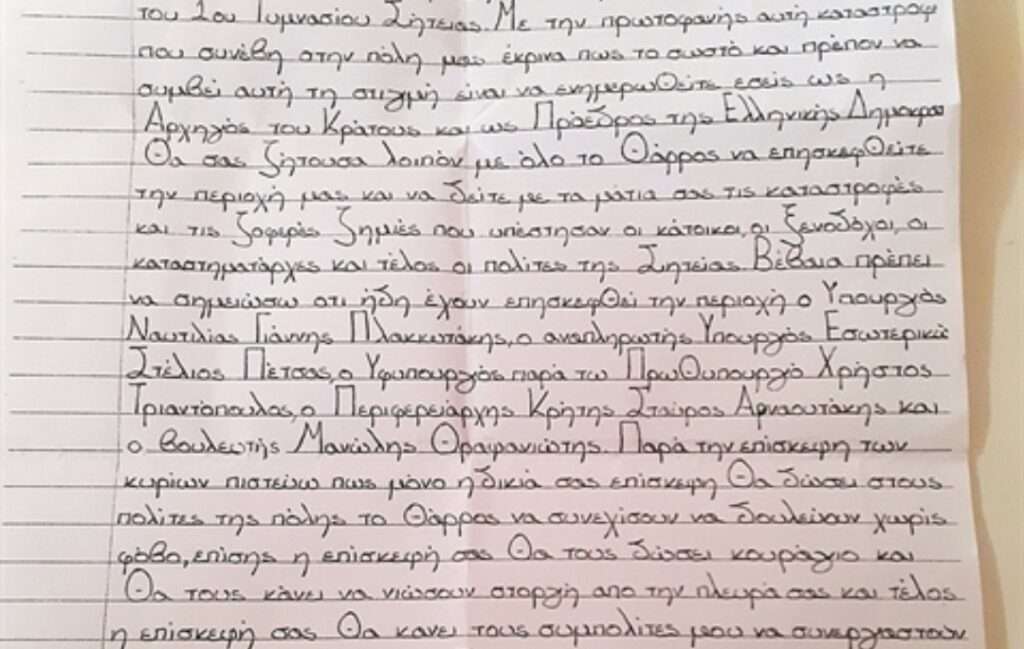 του 2ου Γυμνασίου Σητείας. Με την πρωτοφανής αυτή καταστροφ
που συνέβη στην πόλη μας έκρινα πως το σωστό και πρέπον να
συμβεί αυτή τη στιγμή είναι να ενημερωθείτε εσείς ως η
Αρχηγός του Κράτους και ως Πρόεδρος της Ελληνικής Δημοκρα
Θα σας ζητούσα λοιπόν με όλο το Θάρρος να επησκεφθείτε
την περιοχή μας και να δείτε με τα μάτια σας τις καταστροφές
και τις ζοφερές ζημιές που υπέστησαν οι κάτοικοι, οι ξενοδόχοι, οι
καταστηματάρχες και τέλος οι πολίτες της Σητείας. Βέβαια πρέπει
να σημειώσω οτι ήδη έχουν επησκεφθεί την περιοχή ο Υπουργός
Ναυτιλίας Γιάννης Πλακιωτάκης, ο αναπληρωτής Υπουργός Εσωτερικώ
Στέλιος Πέτσας, ο Υφυπουργός παρά τω Πρωθυπουργό Χρήστος
Τριαντόπουλος, ο Περιφερειάρχης Κρήτης Σταύρος Αρναουτάκης και
ο βουλευτής Μανώλης Θραψανιώτης. Παρά την επίσκεψη των
κυρίων πιστεύω πως μόνο η δικιά σας επίσκεψη Θα δώσει στους
πολίτες της πόλης το Θάρρος να συνεχίσουν να δουλεύουν χωρίς
φόβο, επίσης η επίσκεψή σας Θα τους δώσει κουράγιο και
Θα τους κάνει να νιώσουν στοργή απο την πλευρά σας και τέλος
η επίσκεψή σας Θα κανει τους συμπολίτες μου να συνεργαστούν